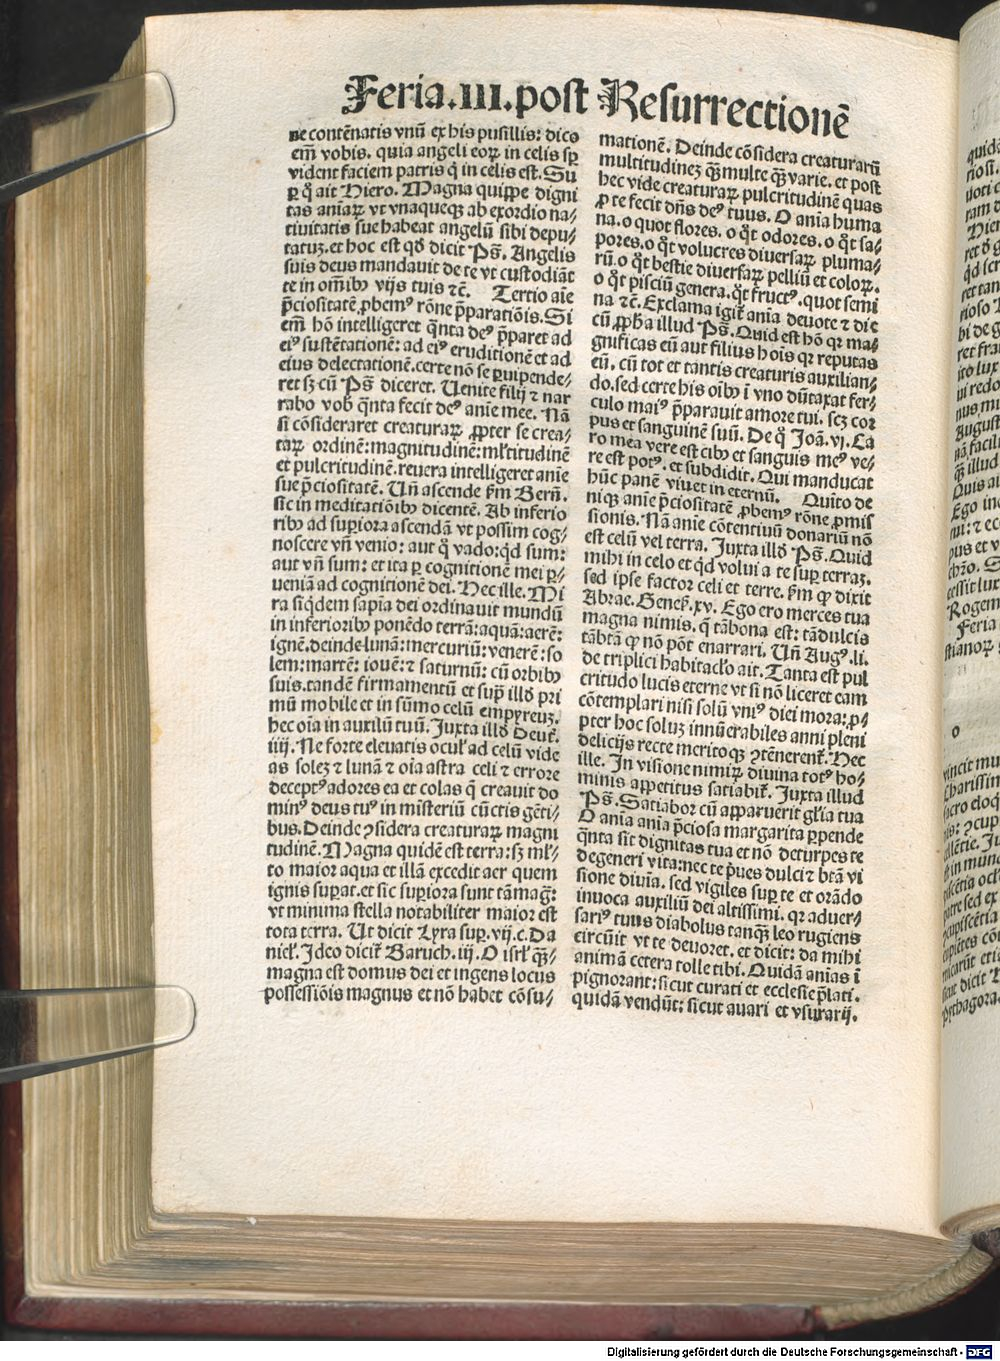 Feria.III.post Resurrectionē
ne contēnatis vnū ex his pusillis: dico
em̄ vobis. quia angeli eoꝝ in celis sp̄
vident faciem patris q̇ in celis est. Su
ꝑ q̊ ait Hiero. Magna quippe digni
tas aniaꝝ vt vnaqueqꝫ ab exordio na⸗
tiuitatis sue habeat angelū sibi depu⸗
tatuꝫ. et hoc est qd̄ dicit Ps̄. Angelis
suis deus mandauit de te vt custodiāt
te in om̄ibꝰ vijs tuis ⁊c̄. Tertio aīe
p̄ciositatē ꝓbemꝰ rōne p̄paratiōis. Si
em̄ hō intelligeret q̄nta deꝰ p̄paret ad
eiꝰ sustētationē: ad eiꝰ eruditionē et ad
eius delectationē. certe nō se ꝑuipende⸗
ret sꝫ cū Ps̄ diceret. Uenite filij ⁊ nar
rabo vob̄ q̄nta fecit deꝰ anie mee. Nā
si cōsideraret creaturaꝝ ꝓpter se crea⸗
taꝝ ordinē: magnitudinē: ml̄titudinē
et pulcritudinē. reuera intelligeret anie
sue p̄ciositatē. Un̄ ascende s̄m Bern̄.
sic in meditatiōibꝰ dicentē. Ab inferio
ribꝰ ad supiora ascendā vt possim cog⸗
noscere vn̄ venio: aut q̊ vado: qd̄ sum:
aut vn̄ sum: et ita ꝑ cognitionē mei ꝑ⸗
ueniā ad cognitionē dei. Hec ille. Mi
ra siq̇dem sapīa dei ordinauit mundū
in inferioribꝰ ponēdo terrā: aquā: aerē:
ignē. deinde lunā: mercuriū: venerē: so
lem: martē: iouē: ⁊ saturnū: cū orbibꝰ
suis. tandē firmamentū et supꝭ illd̄ pri
mū mobile et in sūmo celū empyreuꝫ.
hec oīa in auxiliū tuū. Juxta illd̄ Deut̄.
iiij. Ne forte eleuatis ocul̄ ad celū vide
as solez ⁊ lunā ⁊ oīa astra celi ⁊ errore
deceptꝰ adores ea et colas q̄ creauit do
minꝰ deus tuꝰ in misteriū cūctis gēti⸗
bus. Deinde ꝯsidera creaturaꝝ magni
tudinē. Magna quidē est terra: sꝫ ml̄⸗
to maior aqua et illā excedit aer quem
ignis supat. et sic supiora sunt tā maḡ:
vt minima stella notabiliter maior est
tota terra. Ut dicit Lyra sup. vij. c. Da
niel̄. Ideo dicit̄ Baruch. iij. O isrl̄ q̄ꝫ⸗
magna est domus dei et ingens locus
possessiōis magnus et nō habet cōsu⸗
mationē. Deinde cōsidera creaturarū
multitudinez q̄ꝫ multe q̄ꝫ varie. et post
hec vide creaturaꝝ pulcritudinē quas
ꝓ te fecit dn̄s deꝰ tuus. O anīa huma
na. o quot flores. o q̊t odores. o q̊t sa⸗
pores. o q̊t volucres diuersaꝝ pluma⸗
rū. o q̊t bestie diuersaꝝ pelliū et coloꝝ.
o q̊t pisciū genera. q̊t fructꝰ. quot semi
na ⁊c̄. Exclama igit̄ anīa deuote ⁊ dic
cū ꝓph̄a illud Ps̄. Quid est hō qꝛ ma⸗
gnificas eū aut filius hoīs qꝛ reputas
eū. cū tot et tantis creaturis auxilian⸗
do. sed certe his oībꝰ ī vno dūtaxat fer⸗
culo maiꝰ p̄parauit amore tui. scꝫ cor
pus et sanguinē suū. De q̊ Joā. vj. Ca
ro mea vere est cibꝰ et sanguis meꝰ ve⸗
re est potꝰ. et subdidit. Qui manducat
hūc panē viuet in eternū. Quīto de
niqꝫ anie p̄ciositatē ꝓbemꝰ rōne ꝓmis
sionis. Nā anie cōtentiuū donariū nō
est celū vel terra. Juxta illd̄ Ps̄. Quid
mihi in celo et qd̄ volui a te sup terraꝫ.
sed ipse factor celi et terre. s̄m ꝙ dixit
Abrae. Genes̄. xv. Ego ero merces tua
magna nimis. q̄ tā bona est: tā dulcis
tāta ꝙ nō pōt enarrari. Un̄ Augꝰ. li.
de triplici habitacl̄o ait. Tanta est pul
critudo lucis eterne vt si nō liceret eam
cōtemplari nisi solū vniꝰ diei mora: ꝓ⸗
pter hoc soluꝫ innūerabiles anni pleni
delicijs recte meritoqꝫ ꝯtēnerent̄. Hec
ille. In visione nimiꝝ diuina totꝰ ho⸗
minis appetitus satiabit̄. Juxta illud
Ps̄. Satiabor cū apparuerit gl̄ia tua
O anīa anīa p̄ciosa margarita ꝑpende
q̄nta sit dignitas tua et nō deturpes te
degeneri vita: nec te p̄ues dulci ⁊ btā vi
sione diuīa. sed vigiles sup te et orādo
inuoca auxiliū dei altissimi. qꝛ aduer⸗
sariꝰ tuus diabolus tanqꝫ leo rugiens
circūit vt te deuoret. et dicit: da mihi
animā cetera tolle tibi. Quidā anīas ī
pignorant: sicut curati et ecclesie p̄lati.
quidā vendūt: sicut auari et vsurarij.
Digitalisierung gefördert durch die Deutsche Forschungsgemeinschaft - DFG